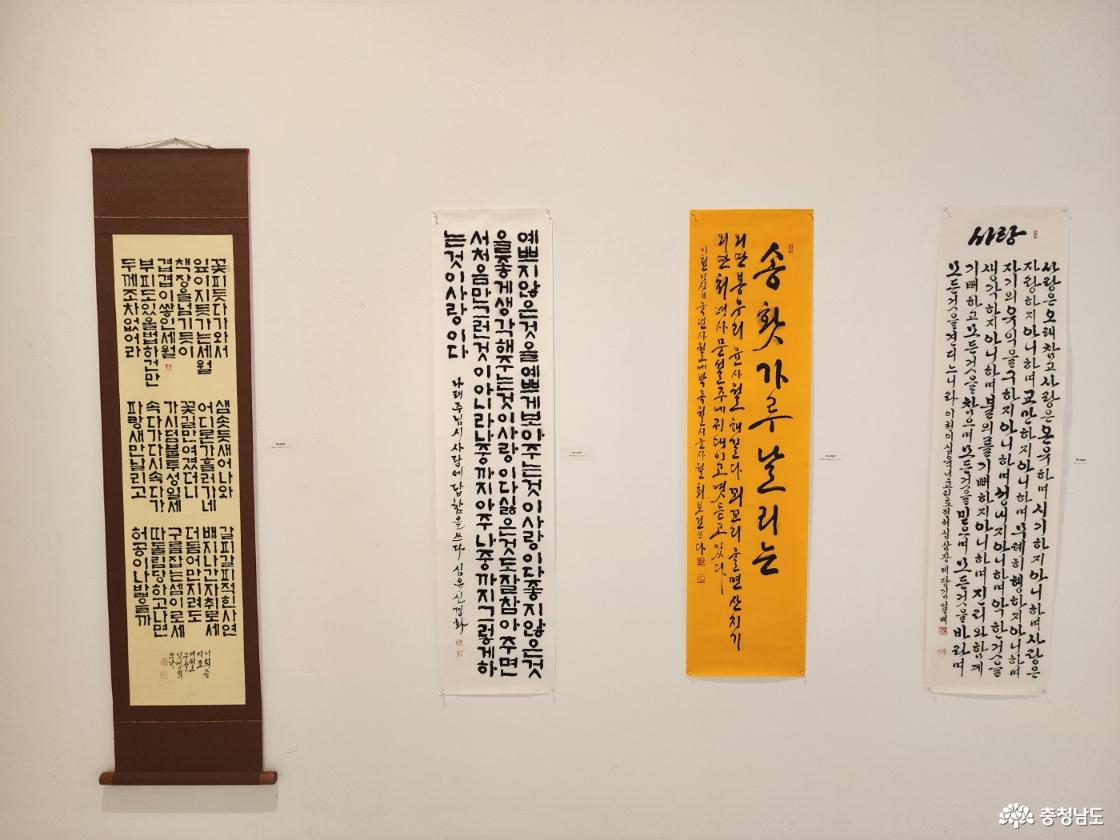 꽃피듯다가와서
잎이지듯가는세월
책장을넘기듯이
겹겹이쌓인세월
부피도있을법하건만
두께조차없어라
샘솟듯새어나와
어디론가흘러가네
꽃길만여겼더니
가시덤불투성일세
속다가다시속다가
파랑새만날리고
갈피갈피적힌사연
배지나간자취로세
더듬어만지려도
구름잡는셈이로세
따돌림당하고나면
허공이나밟을까
이희승
시조
예쁘지않은것을예쁘게보아주는것이사랑이다좋지않은것
을좋게생각해주는것이사랑이다싫은것도잘참아주면
서처음만그런것이아니라나중까지아주나중까지그렇게하
는것이사랑이다 나태주님시사랑에답함을쓰다 심유신경화
송홧가루날리는
외딴 봉우리 윤사월 해길다 꾀꼬리 울면 산지기
외딴 처녀사 문설주에 귀대이고 엿듣고 있다
사랑
사랑은오래참고사랑은온유하며시기하지아니하며사랑은
자랑하지아니하며교만하지아니하며무례히행하지아니하며
자기의유익을구하지아니하며성내지아니하며악한것을
생각하지아니하며불의를기뻐하지아니하며진리와함께
기뻐하고모든것을참으며모든것을믿으며모든것을바라며
모든것을견디느니라
충청남도